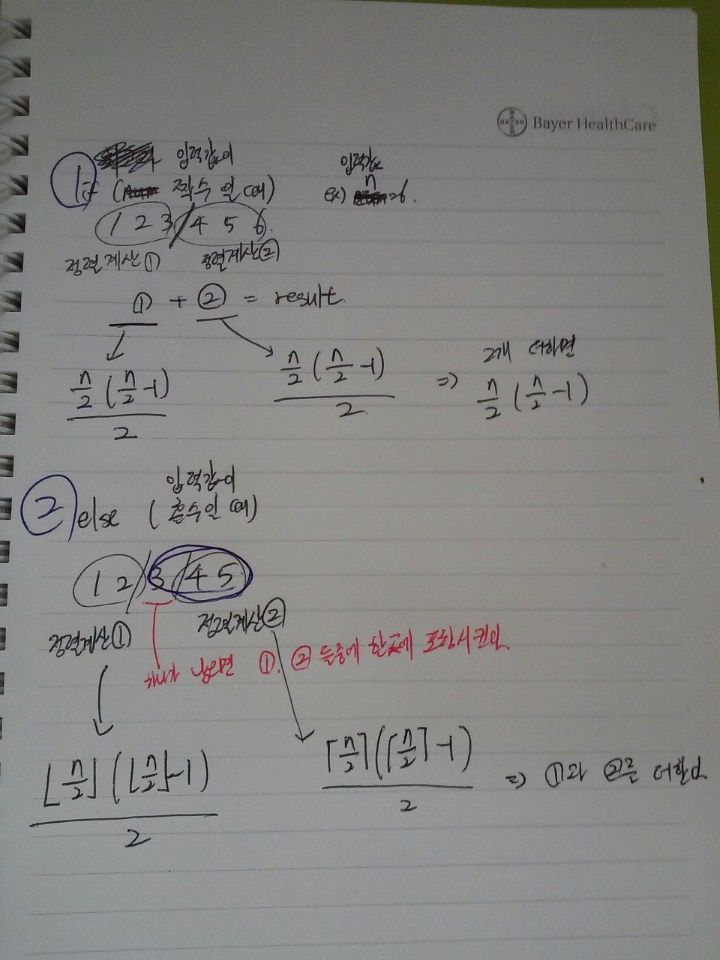 BAYER Bayer HealthCare
입력값이 입력값
① if ( 짝수 일 때) ex) n = 6.
1 2 3 / 4 5 6.
정렬계산① 정렬계산②
① + ② = result.
n/2 (n/2 - 1) / 2 n/2 (n/2 - 1) / 2 ⇒ 2개 더하면 n/2 (n/2 - 1)
입력값이
② else ( 홀수일 때)
1 2 / 3 / 4 5
정렬계산① 정렬계산②
하나가 남으면 ①, ② 둘중에 한곳에 포함시킨다.
⌊n/2⌋ (⌊n/2⌋ - 1) / 2 ⌈n/2⌉ (⌈n/2⌉ - 1) / 2 ⇒ ①과 ②를 더한다.